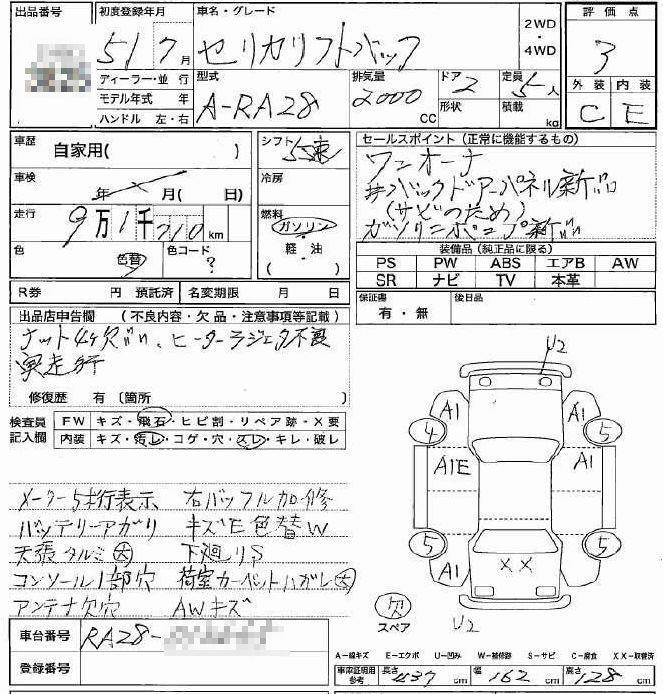 出品番号
初度登録年月
51 7月
車名・グレード
セリカリフトバック
2WD
・
4WD
評価点
3
外装 内装
C E
ディーラー・並行
モデル年式 年
ハンドル 左・右
型式
A-RA28
排気量
2000
CC
ドア 2
形状
定員 5人
積載 kg
車歴
自家用( )
シフト 5速
冷房
車検
年 月( 日)
走行
9万1千710km
燃料
ガソリン
・
軽・油
( )
色
色替
色コード
?
セールスポイント(正常に機能するもの)
ワンオーナ
#バックドアーパネル新品
(サビのため)
ガソリンポンプ新品
装備品(純正品に限る)
PS PW ABS エアB AW
SR ナビ TV 本革
R券 円 預託済
名変期限 月 日
保証書
有・無
後日品
出品店申告欄 (不良内容・欠品・注意事項等記載)
ナット4ケ欠品、ヒーターラジエタ不良
実走行
修復歴 有〔箇所
検査員
記入欄
FW キズ・飛石・ヒビ割・リペア跡・X要
内装 キズ・汚レ・コゲ・穴・スレ・キレ・破レ
U2
A1 A1
4 5
A1E A1
5 5
A1 XX A1
欠
スペア
U2
メーター5桁表示 右バッフル加修
バッテリーアガリ キズE色替W
天張タルミ大 下廻りS
コンソール1部穴 荷室カーペットハガレ大
アンテナ欠穴 AWキズ
車台番号 RA28-
登録番号
A-線キズ E-エクボ U-凹み W-補修跡 S-サビ C-腐食 XX-取替済
車庫証明用
参考
長さ 437 cm 幅 162 cm 高さ 128 cm